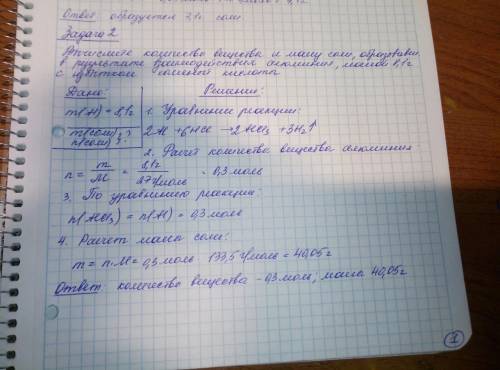 Ответ: образуется 7,1г соли
Задача 2
Вычислите количество вещества и массу соли, образовавш.
в результате взаимодействия алюминия, массой 8,1г
с избытком соляной кислоты
Дано: Решение:
m(Al) = 8,1г 1. Уравнение реакции:
m(соли) - ? 2Al + 6HCl → 2AlCl₃ + 3H₂↑
n(соли) - ?
2. Расчет количества вещества алюминия
n = m/M = 8,1г/27г/моль = 0,3 моль
3. По уравнению реакции:
n(AlCl₃) = n(Al) = 0,3 моль
4. Расчет массы соли:
m = n·M = 0,3 моль · 133,5 г/моль = 40,05г
Ответ: количество вещества - 0,3 моль, масса 40,05г
1